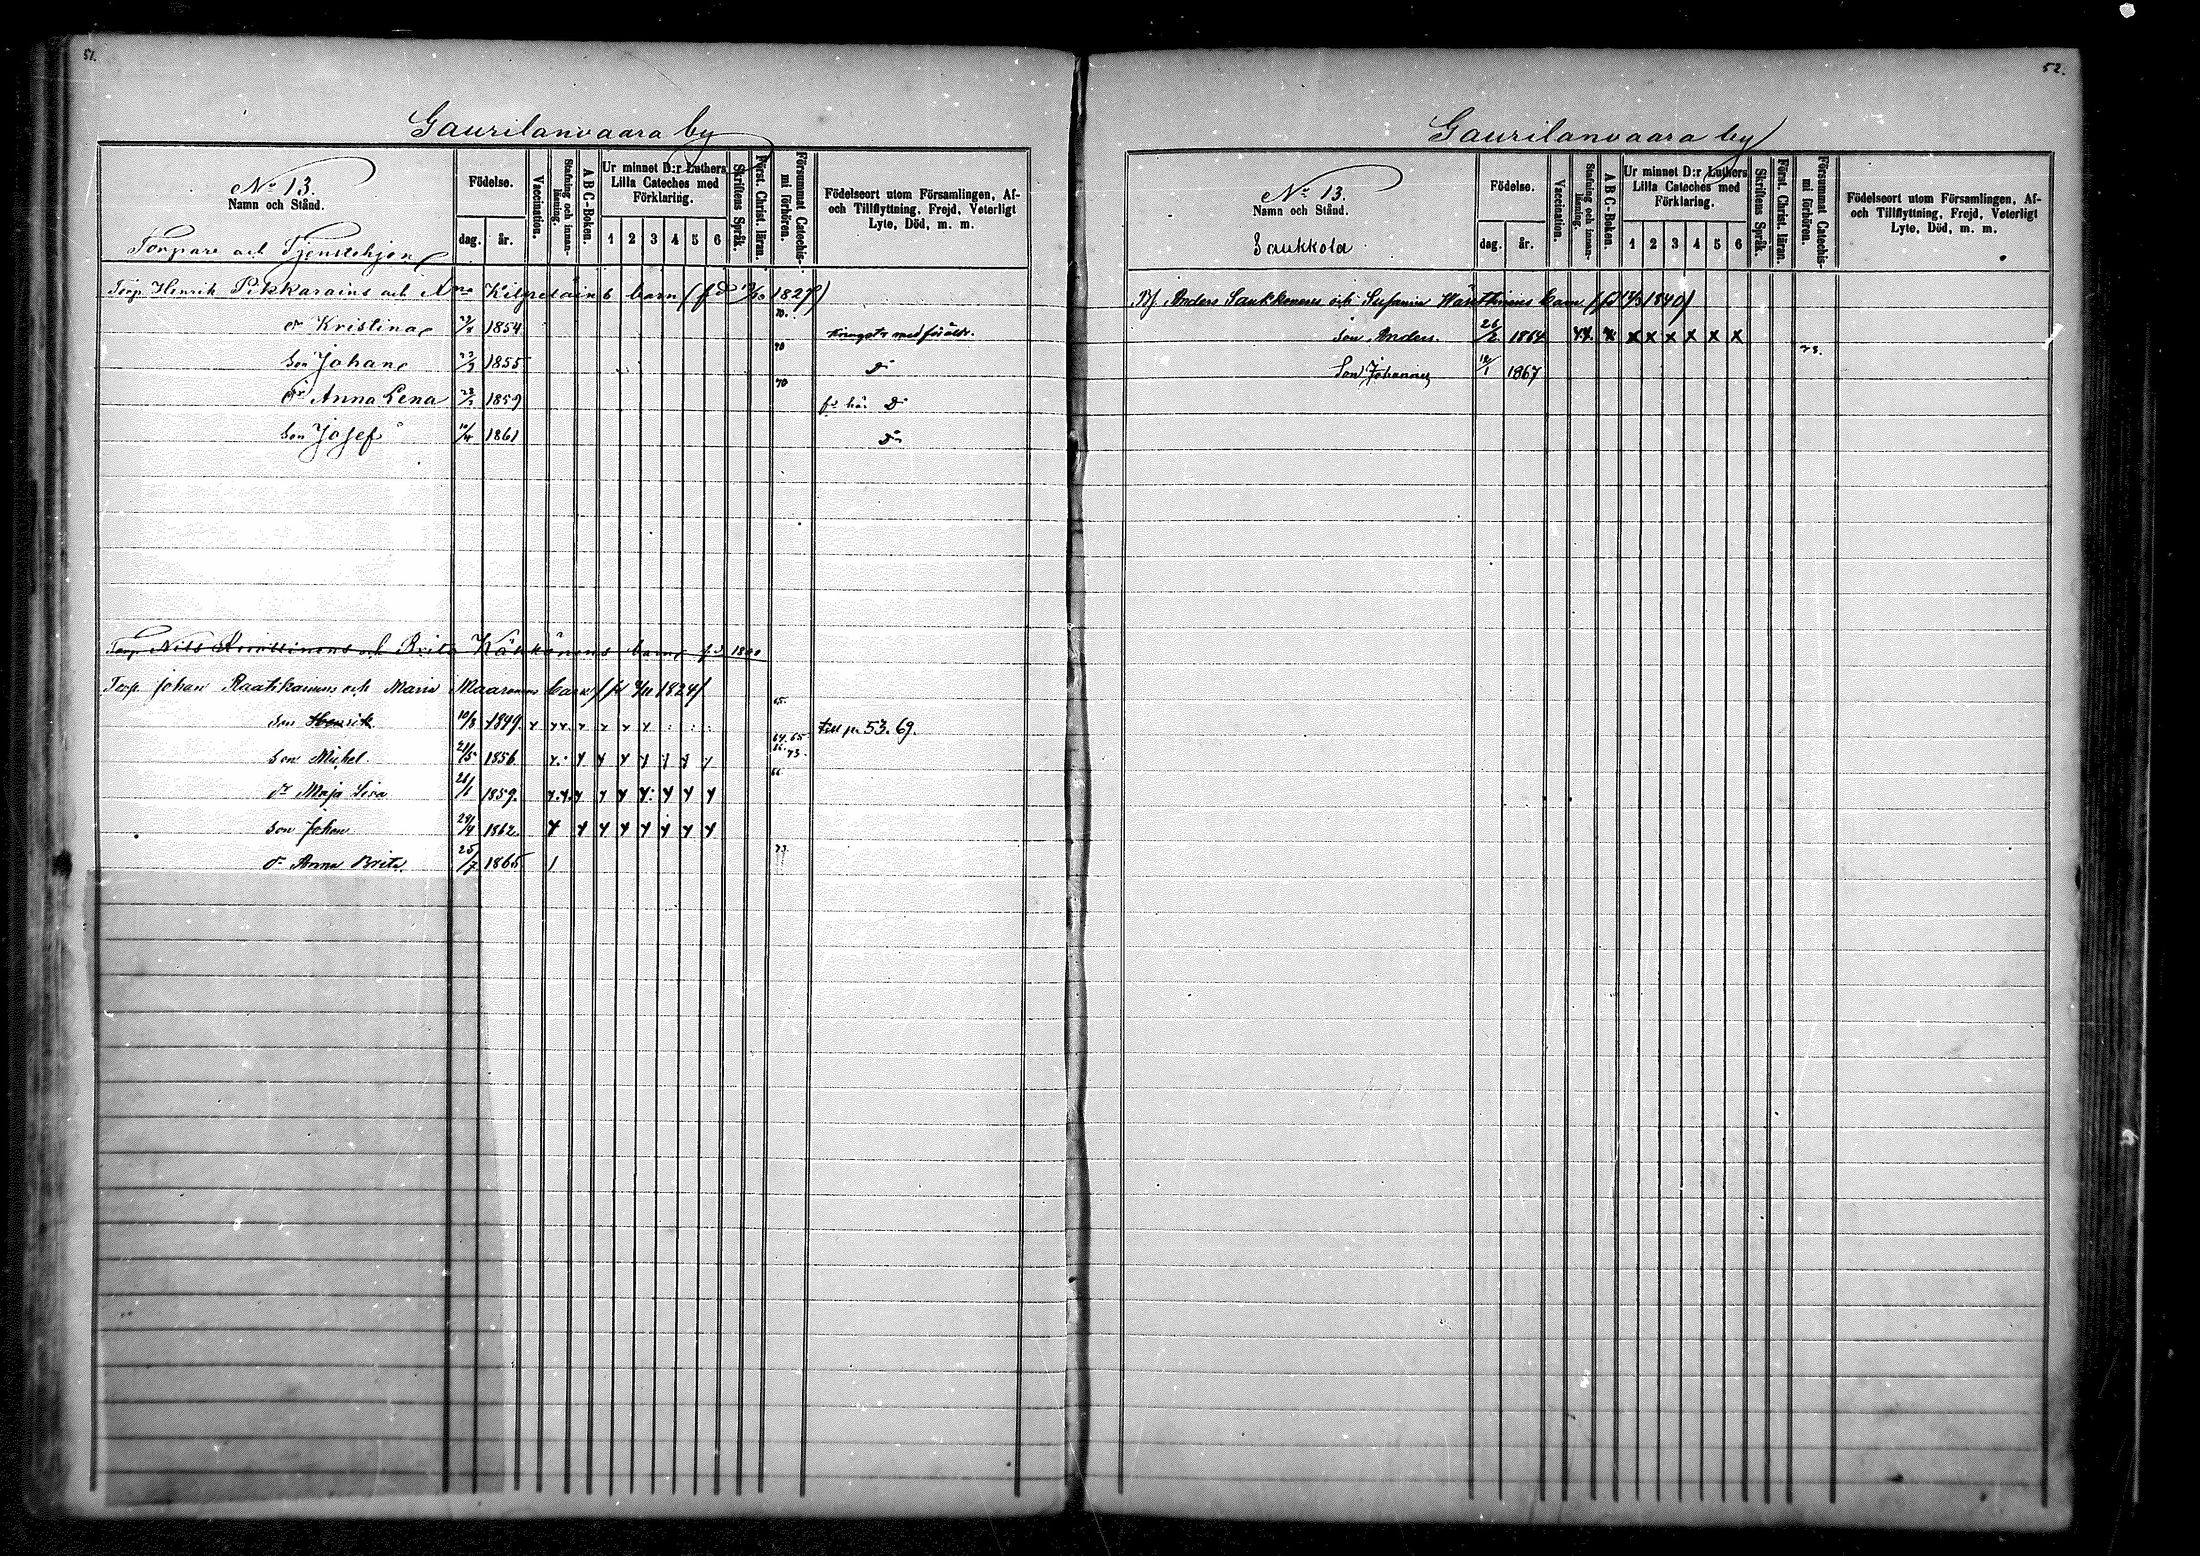 51.
Gaurilanvaara by
No 13.
Namn och Stånd.
Torpare och Tjenstehjon
Födelse.
dag. år.
Vaccination.
Stafning och innan-läsning.
A B C-Boken.
Ur minnet D:r Luthers
Lilla Cateches med
Förklaring.
1 2 3 4 5 6
Skriftens Språk.
Först. Christ. läran.
Försummat Catechis-
mi förhören.
Födelseort utom Församlingen, Af-
och Tillflyttning, Frejd, Veterligt
Lyte, Död, m. m.
Torp. Henrik och barn 1827)
70.
dr Kristina 1854 med föräldr.
70
Son Johan 1855 do
70
dr Anna Lena 1859 do
Son Josef 10/4 1861 do
Torp. Nils och Brita barn fd
Torp. Johan Raatikainens och Maria Maaranens barn (fd 1824)
65.
Son Henrik 10/8 1849. Till p. 53. 69.
64. 65
73.
Son Mikel. 21/5 1856
66
dr Maja Lisa 26/1 1859.
Son Johan 1862.
73.
dr Anna Brita. 25/7 1865
52.
Gaurilanvaara by
No 13.
Namn och Stånd.
Saukkola
Födelse.
dag. år.
Vaccination.
Stafning och innan-läsning.
A B C-Boken.
Ur minnet D:r Luthers
Lilla Cateches med
Förklaring.
1 2 3 4 5 6
Skriftens Språk.
Först. Christ. läran.
Försummat Catechis-
mi förhören.
Födelseort utom Församlingen, Af-
och Tillflyttning, Frejd, Veterligt
Lyte, Död, m. m.
Anders Saukkonens och Susanna barn 1840)
Son Anders. 26/2 1864 x x x x x x
73.
Son Johannes 1867